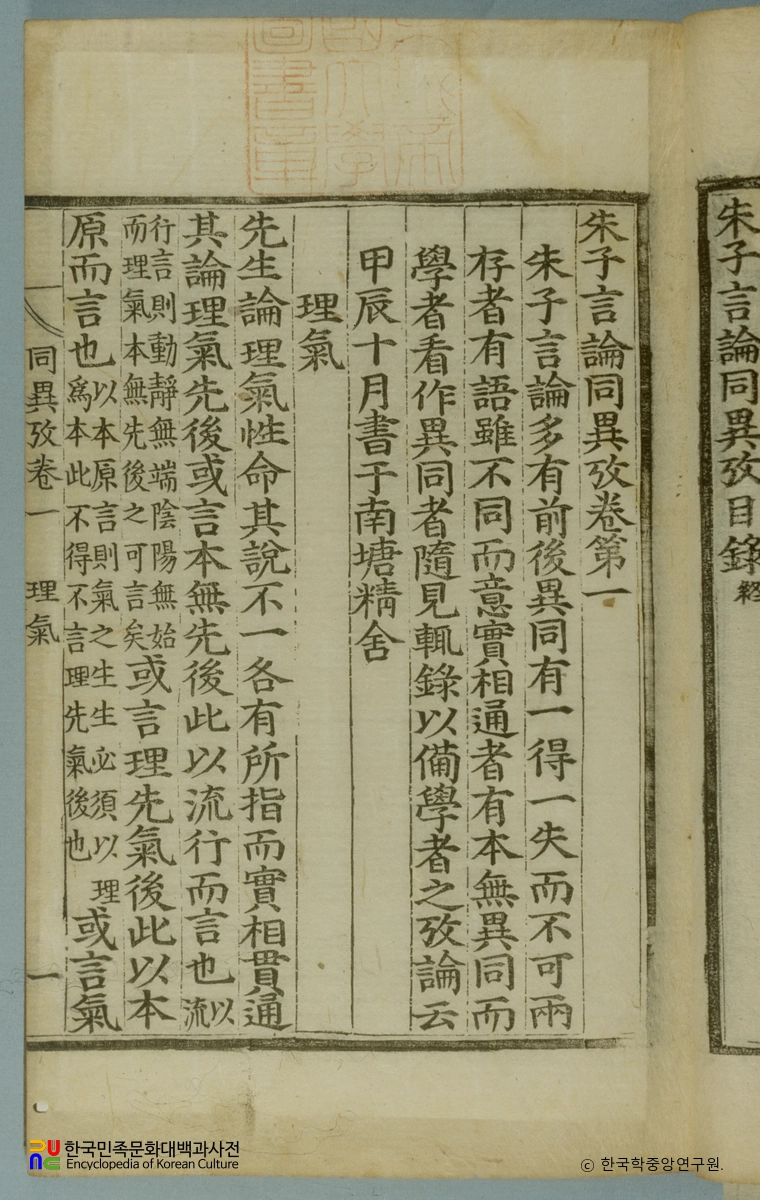 朱子言論同異攷目錄
城帝
國大學
圖書章
朱子言論同異攷卷第一
朱子言論多有前後異同有一得一失而不可兩
存者有語雖不同而意實相通者有本無異同而
學者看作異同者隨見輒錄以備學者之攷論云
甲辰十月書于南塘精舍
理氣
先生論理氣性命其說不一各有所指而實相貫通
其論理氣先後或言本無先後此以流行而言也以流
行言則動靜無端陰陽無始而理氣本無先後之可言矣或言理先氣後此以本
原而言也以本原言則氣之生生必須以理爲本此不得不言理先氣後也或言氣
同異攷卷一 理氣 一
한국민족문화대백과사전
Encyclopedia of Korean Culture
© 한국학중앙연구원.